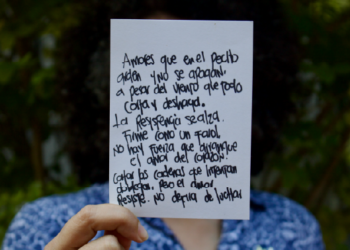 Amores que en el pecho
arden y no se apagan,
a pesar del viento que todo
corta y deshaga.
La Resistencia se alza.
Firme como un farol
No hay fuerza que arranque
el amor del corazón.
las cadenas que intentan
pero el amor
Resiste. No dejará de luchar